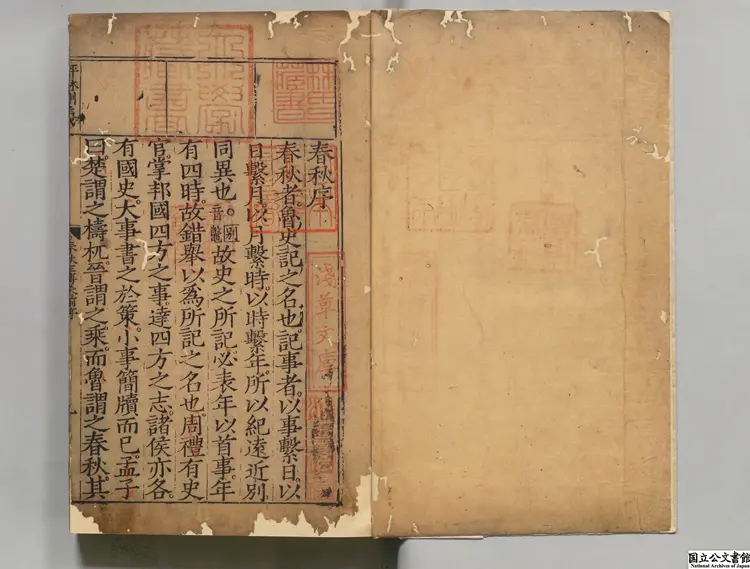 春秋序
春秋者魯史記之名也記事者以事繫日以
日繫月以月繫時以時繫年所以紀遠近別
同異也。別音鼈故史之所記必表年以首事年
有四時故錯舉以為所記之名也周禮有史
官掌邦國四方之事達四方之志諸侯亦各
有國史大事書之於策小事簡牘而已孟子
曰楚謂之檮杌晉謂之乘而魯謂之春秋其
淺草文庫
国立公文書館
National Archives of Japan